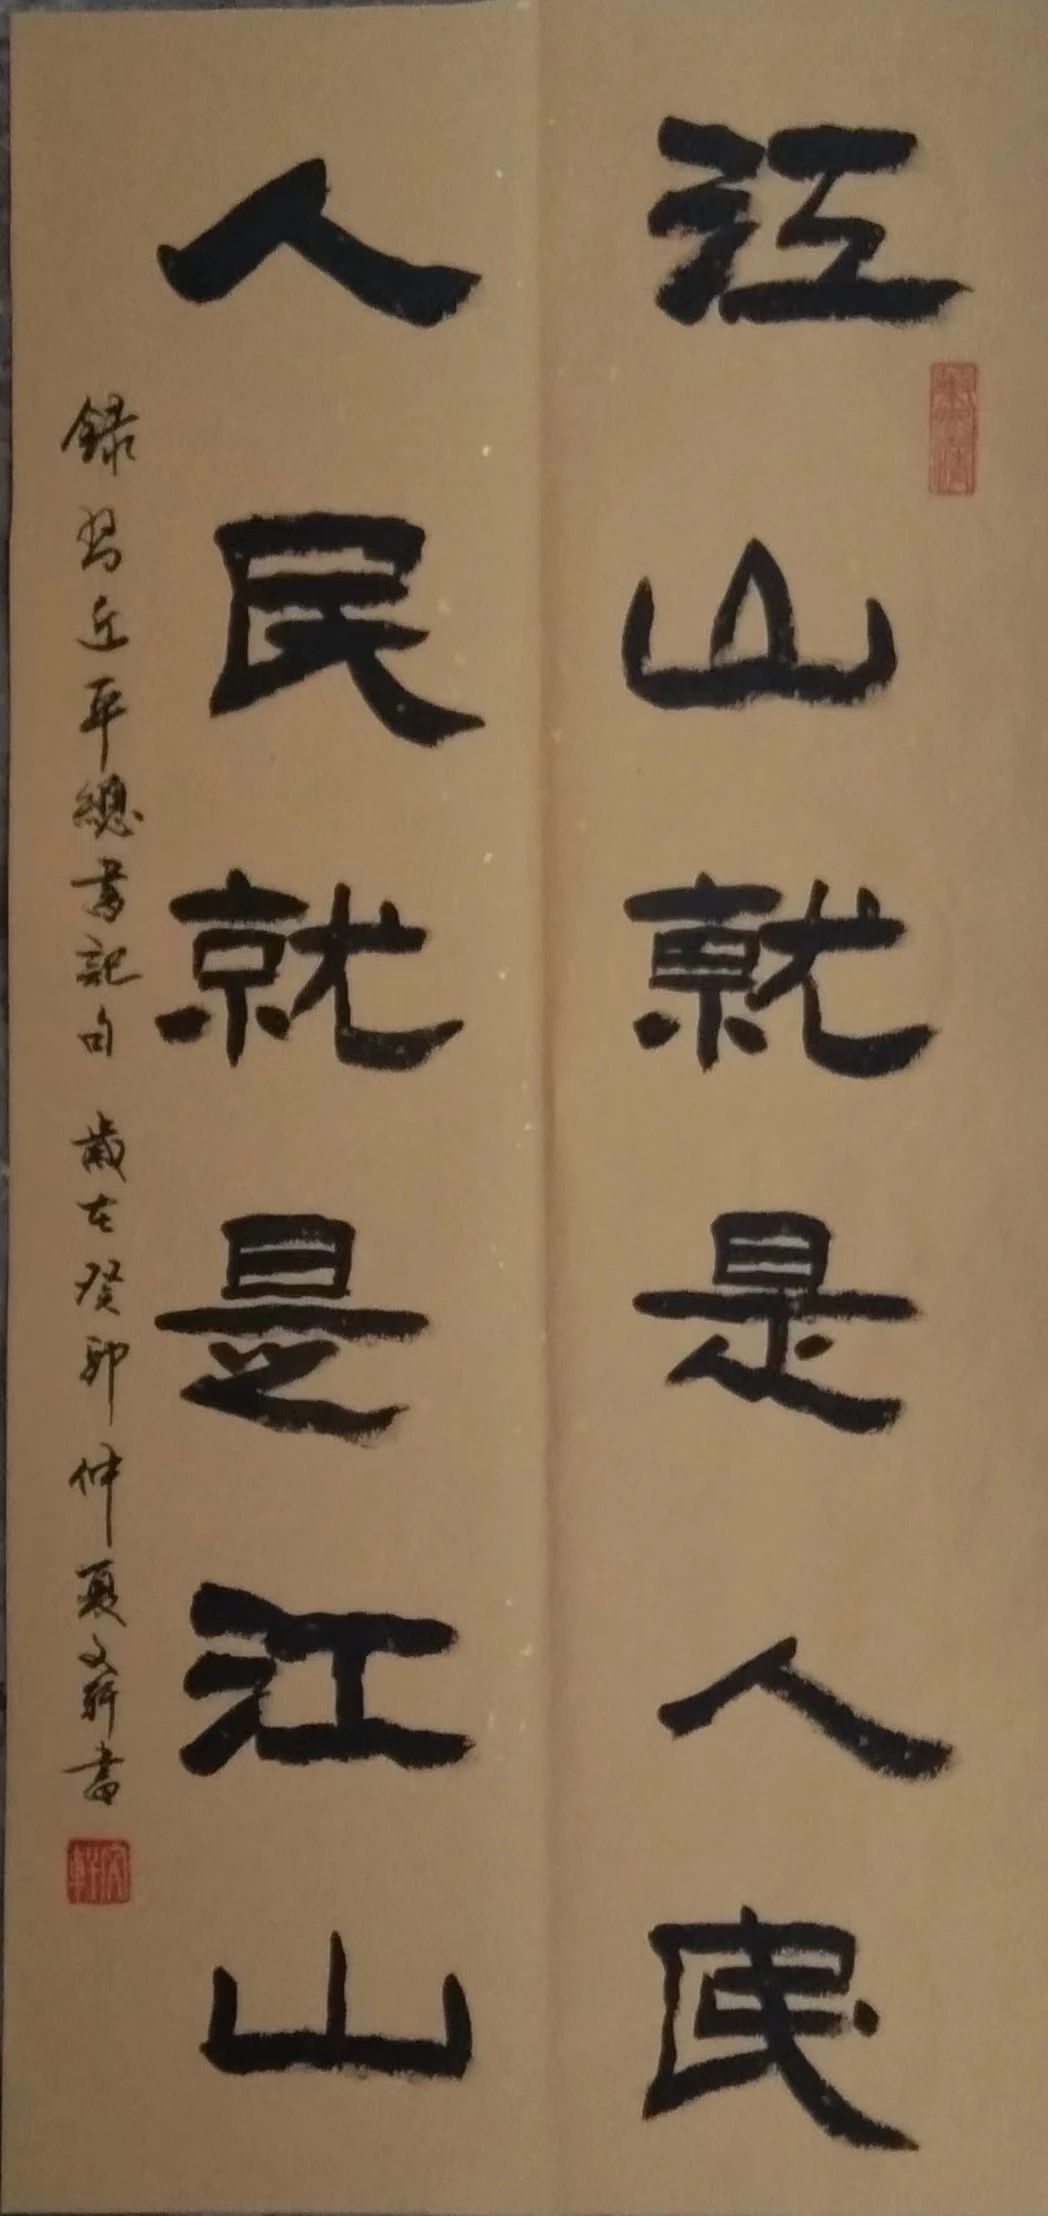 江山就是人民
人民就是江山
録習近平總書記句 歲在癸卯仲夏文軒書
文軒